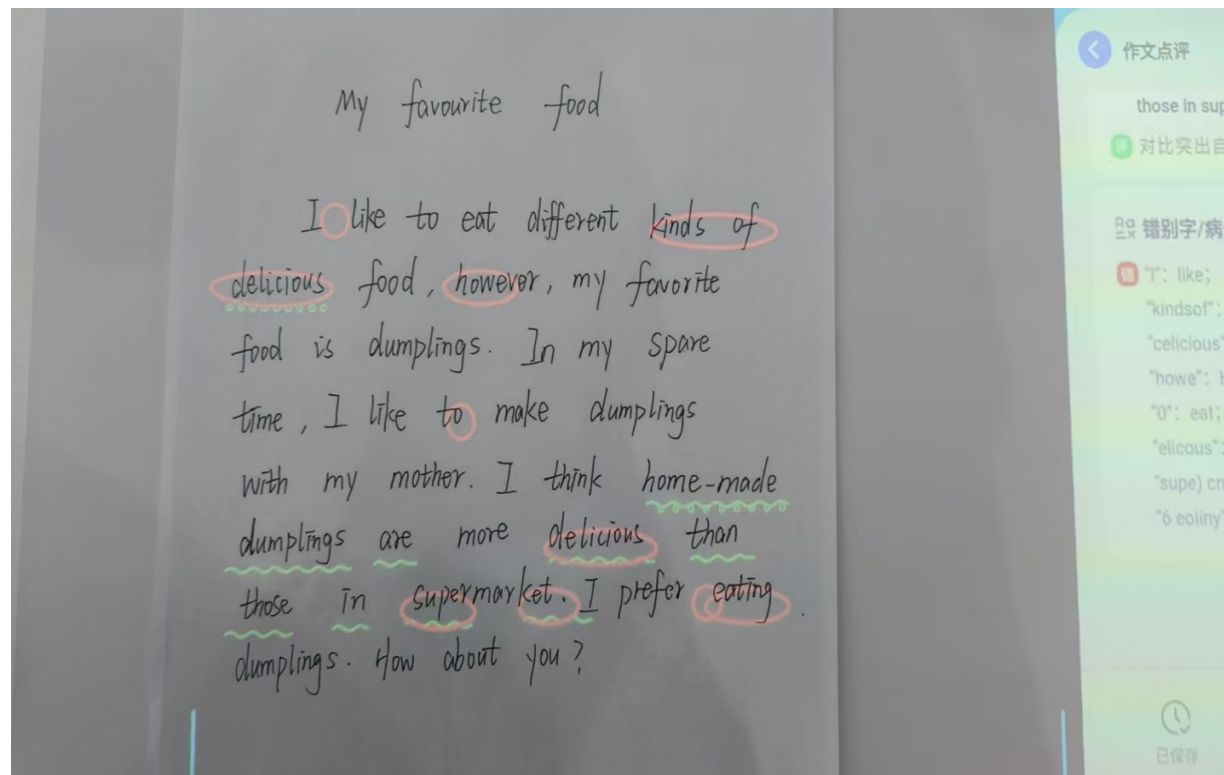 My favourite food
I like to eat different kinds of
delicious food, however, my favorite
food is dumplings. In my spare
time, I like to make dumplings
with my mother. I think home-made
dumplings are more delicious than
those in supermarket. I prefer eating
dumplings. How about you?
作文点评
those in sup
对比突出自
错别字/病
错 "I": like;
"kindsof":
"celicious"
"howe":
"0": eat;
"elicous":
"supe) cn
"6 eoliny"
已保存